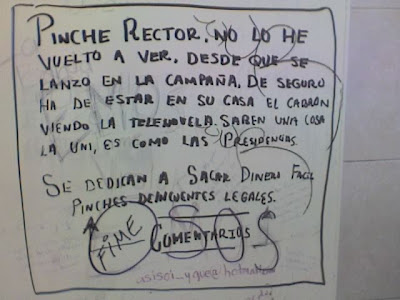 PINCHE RECTOR, NO LO HE
VUELTO A VER, DESDE QUE SE
LANZO EN LA CAMPAÑA, DE SEGURO
HA DE ESTAR EN SU CASA EL CABRON
VIENDO LA TELENOVELA. SABEN UNA COSA
LA UNI, ES COMO LAS PRESIDENCIAS
SE DEDICAN A SACAR DINERO FACIL
PINCHES DELINCUENTES LEGALES.
FIME COMENTARIOS